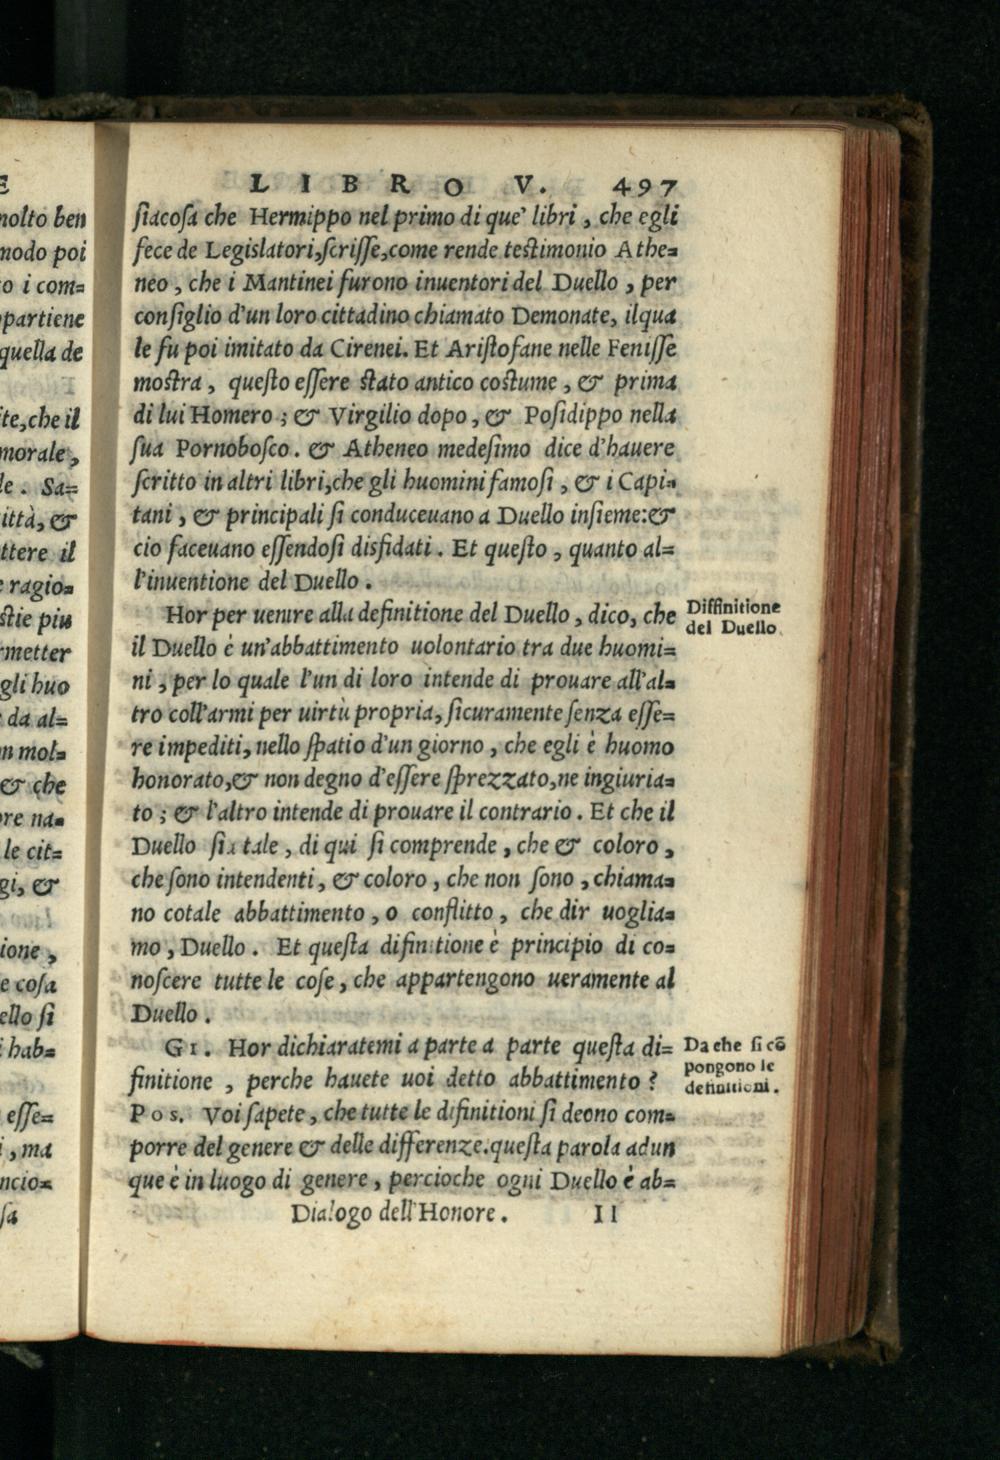 E
molto ben
modo poi
o i com=
partiene
quella de
te, che il
morale,
le. Sa=
ittà, &
ttere il
e ragio=
stie piu
rmetter
gli huo
da al=
n mol=
& che
ore na=
le cit=
gi, &
ione,
e cosa
ello si
i hab=
esse=
i, ma
ncio=
sa
LIBRO V. 497
ſiacoſa che Hermippo nel primo di que' libri, che egli
fece de Legislatori, ſcriſſe, come rende teſtimonio Athe=
neo, che i Mantinei furono inuentori del Duello, per
conſiglio d'un loro cittadino chiamato Demonate, ilqua
le fu poi imitato da Cirenei. Et Ariſtofane nelle Feniſſe
moſtra, queſto eſſere ſtato antico coſtume, & prima
di lui Homero; & Virgilio dopo, & Poſidippo nella
ſua Pornoboſco. & Atheneo medeſimo dice d'hauere
ſcritto in altri libri, che gli huomini famoſi, & i Capi=
tani, & principali ſi conduceuano a Duello inſieme: &
cio faceuano eſſendoſi disfidati. Et queſto, quanto al=
l'inuentione del Duello.
Hor per uenire alla definitione del Duello, dico, che
il Duello è un'abbattimento uolontario tra due huomi=
ni, per lo quale l'un di loro intende di prouare all'al=
tro coll'armi per uirtù propria, ſicuramente ſenza eſſe=
re impediti, nello ſpatio d'un giorno, che egli è huomo
honorato, & non degno d'eſſere ſprezzato, ne ingiuria=
to; & l'altro intende di prouare il contrario. Et che il
Duello ſia tale, di qui ſi comprende, che & coloro,
che ſono intendenti, & coloro, che non ſono, chiama=
no cotale abbattimento, o conflitto, che dir uoglia=
mo, Duello. Et queſta difinitione è principio di co=
noſcere tutte le coſe, che appartengono ueramente al
Duello.
GI. Hor dichiaratemi a parte a parte queſta di=
finitione, perche hauete uoi detto abbattimento?
POS. Voi ſapete, che tutte le difinitioni ſi deono com=
porre del genere & delle differenze. queſta parola adun
que è in luogo di genere, percioche ogni Duello è ab=
Dialogo dell'Honore. II
Diffinitione
del Duello.
Da che ſi cō
pongono le
definitioni.